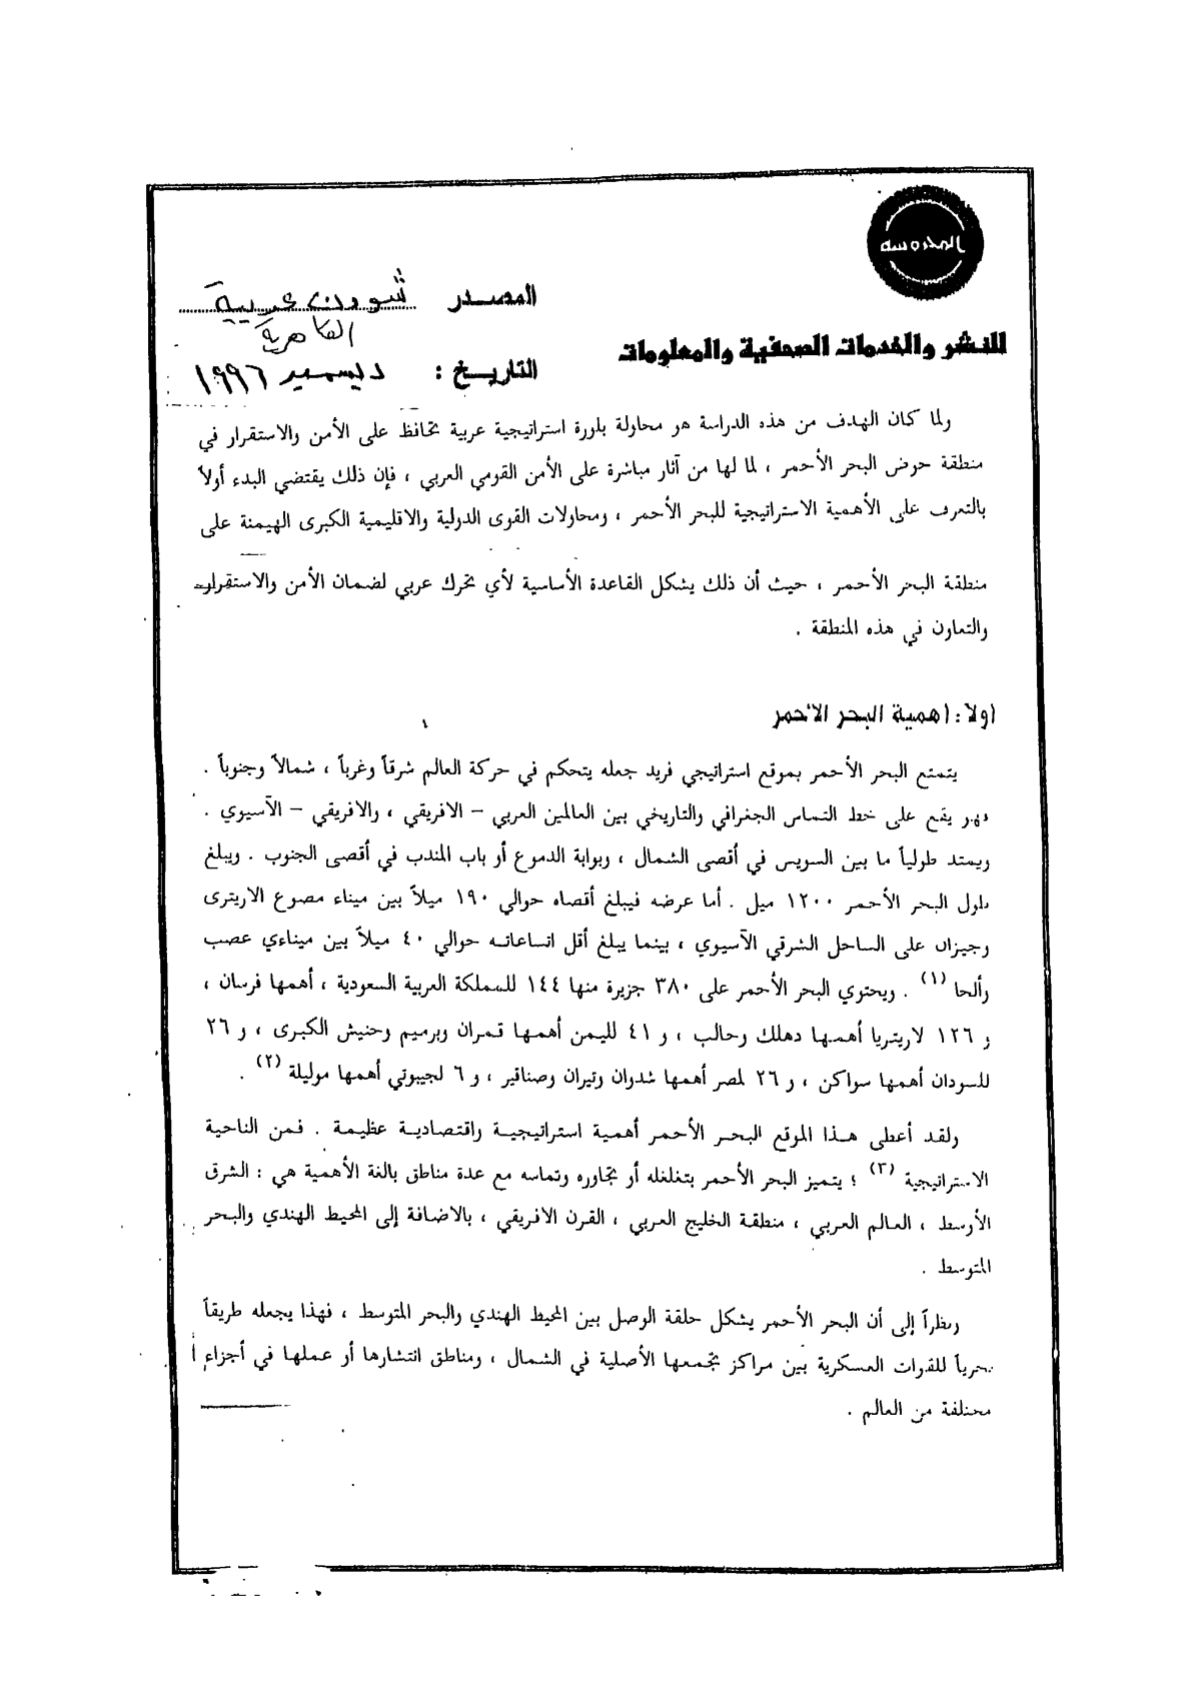 المحروسه
للنشر والخدمات الصحفية والمعلومات
المصدر شوون عربية
القاهرية
التاريخ : ديسمبر ١٩٩٦
ولما كان الهدف من هذه الدراسة هو محاولة بلورة استراتيجية عربية تحافظ على الأمن والاستقرار في
منطقة حوض البحر الأحمر ، لما لها من آثار مباشرة على الأمن القومي العربي ، فإن ذلك يقتضي البدء أولاً
بالتعرف على الأهمية الاستراتيجية للبحر الأحمر ، ومحاولات القوى الدولية والاقليمية الكبرى الهيمنة على
منطقة البحر الأحمر ، حيث أن ذلك يشكل القاعدة الأساسية لأي تحرك عربي لضمان الأمن والاستقرار
والتعاون في هذه المنطقة .
اولا : اهمية البحر الاحمر
يتمتع البحر الأحمر بموقع استراتيجي فريد جعله يتحكم في حركة العالم شرقاً وغرباً ، شمالاً وجنوباً .
فهو يقع على خط التماس الجغرافي والتاريخي بين العالمين العربي – الافريقي ، والافريقي – الآسيوي .
ويمتد طولياً ما بين السويس في أقصى الشمال ، وبوابة الدموع أو باب المندب في أقصى الجنوب . ويبلغ
طول البحر الأحمر ١٢٠٠ ميل . أما عرضه فيبلغ أقصاه حوالي ١٩٠ ميلاً بين ميناء مصوع الاريترى
وجيزان على الساحل الشرقي الآسيوي ، بينما يبلغ أقل اتساعاته حوالي ٤٠ ميلاً بين ميناءي عصب
وألحا (١) . ويحتوي البحر الأحمر على ٣٨٠ جزيرة منها ١٤٤ للمملكة العربية السعودية ، أهمها فرسان ،
و ١٢٦ لاريتريا أهمها دهلك وحالب ، و ٤١ لليمن أهمها قمران وبرميم وحنيش الكبرى ، و ٢٦
للسودان أهمها سواكن ، و ٢٦ لمصر أهمها شدوان وتيران وصنافير ، و ٦ لجيبوتي أهمها موليلة (٢) .
ولقد أعطى هذا الموقع البحر الأحمر أهمية استراتيجية واقتصادية عظيمة . فمن الناحية
الاستراتيجية (٣) ؛ يتميز البحر الأحمر بتغلغله أو تجاوره وتماسه مع عدة مناطق بالغة الأهمية هي : الشرق
الأوسط ، العالم العربي ، منطقة الخليج العربي ، القرن الافريقي ، بالاضافة إلى المحيط الهندي والبحر
المتوسط .
ونظراً إلى أن البحر الأحمر يشكل حلقة الوصل بين المحيط الهندي والبحر المتوسط ، فهذا يجعله طريقاً
بحرياً للقوات العسكرية بين مراكز تجمعها الأصلية في الشمال ، ومناطق انتشارها أو عملها في أجزاء
مختلفة من العالم .